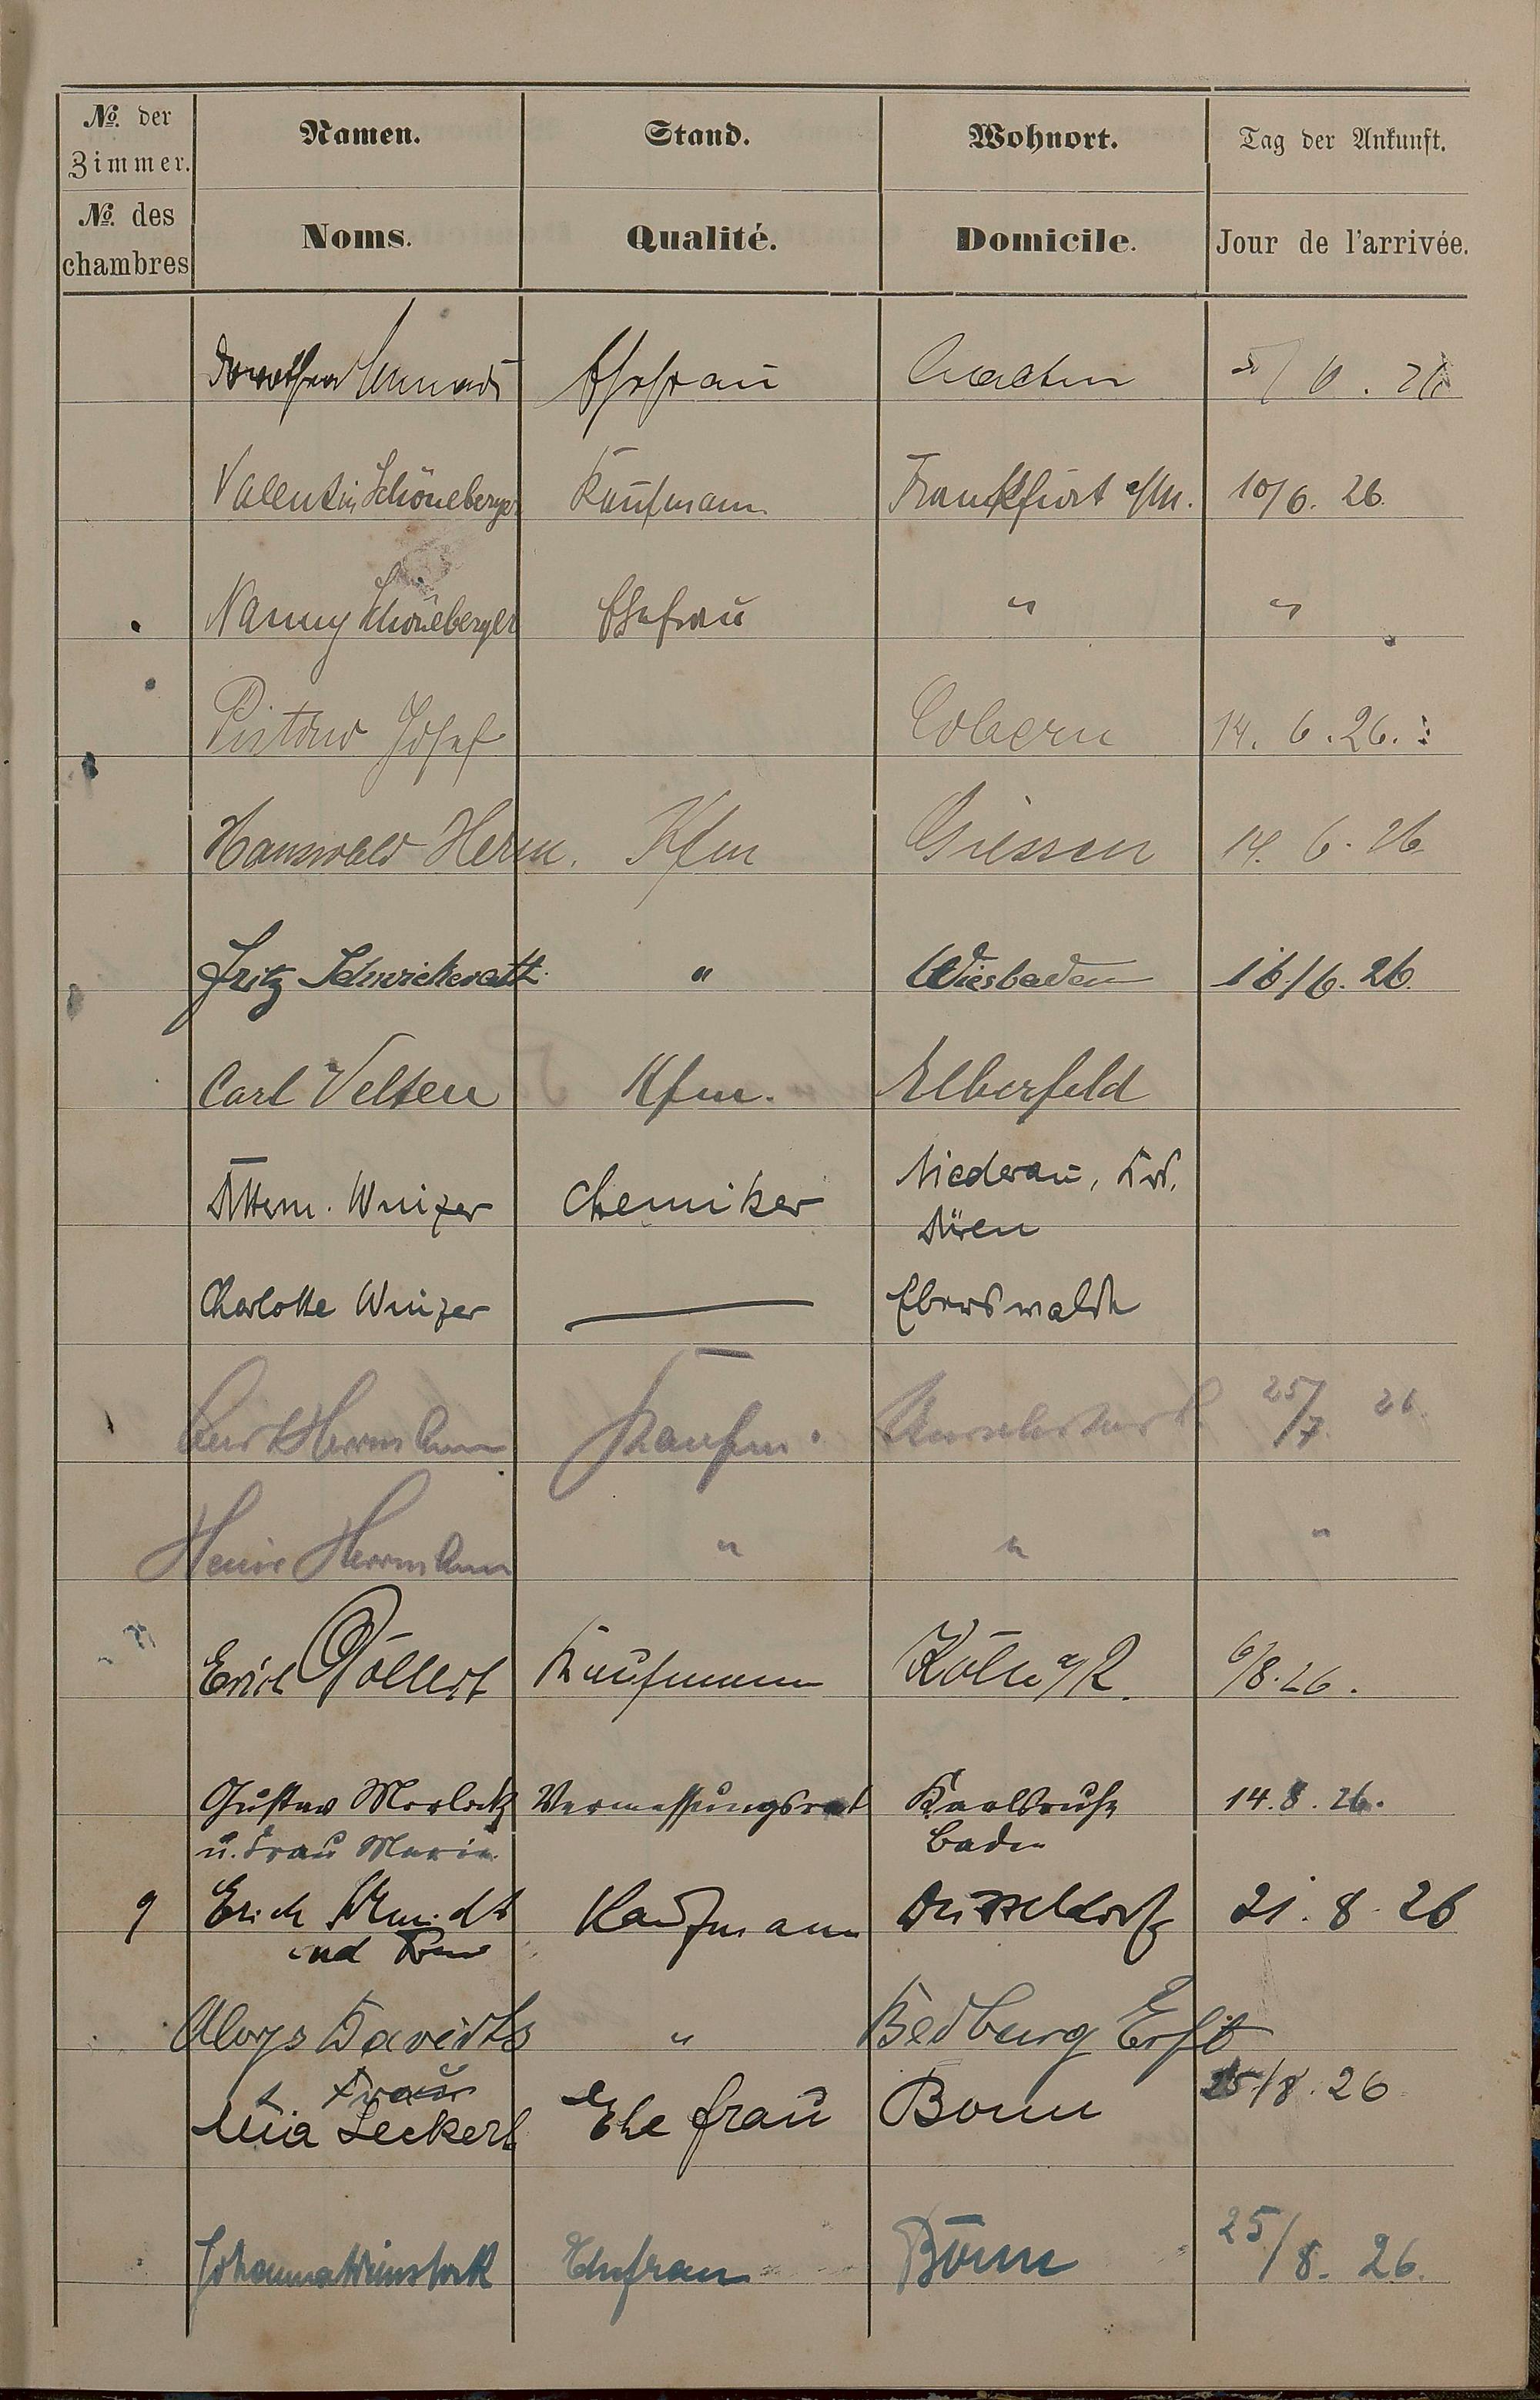 №. der Zimmer. Namen. Stand. Wohnort. Tag der Ankunft.
№. des chambres Noms. Qualité. Domicile. Jour de l'arrivée.
Dorothea Ehefrau Aachen 6. 26
Valentin Schöneberger Kaufmann Frankfurt a/M. 10/6. 26.
Nanny Schöneberger Ehefrau " "
Josef Cobern 14. 6. 26.
Hanswald Herm. Kfm Giessen 14. 6. 26
Fritz Schwickerath " Wiesbaden 16/6. 26.
Carl Velten Kfm. Elberfeld
Winzer Chemiker Niederau, Krs.
Düren
Charlotte Winzer — Eberswalde
Kurt Herrmann Kaufm. 25/7 26.
Herrmann " " "
Erich Göllert Kaufmann Köln a/R. 6/8. 26.
Gustav Morlock Vermessungsrat Karlsruhe 14. 8. 26.
u. Frau Maria Baden
9 Erich Schmidt Kaufmann Düsseldorf 21. 8. 26
und Frau
Aloys Davidts " Bedburg Erft
Frau
Mia Leckert Ehefrau Bonn 25/8. 26
Johanna Weinstock Ehefrau Bonn 25/8. 26.